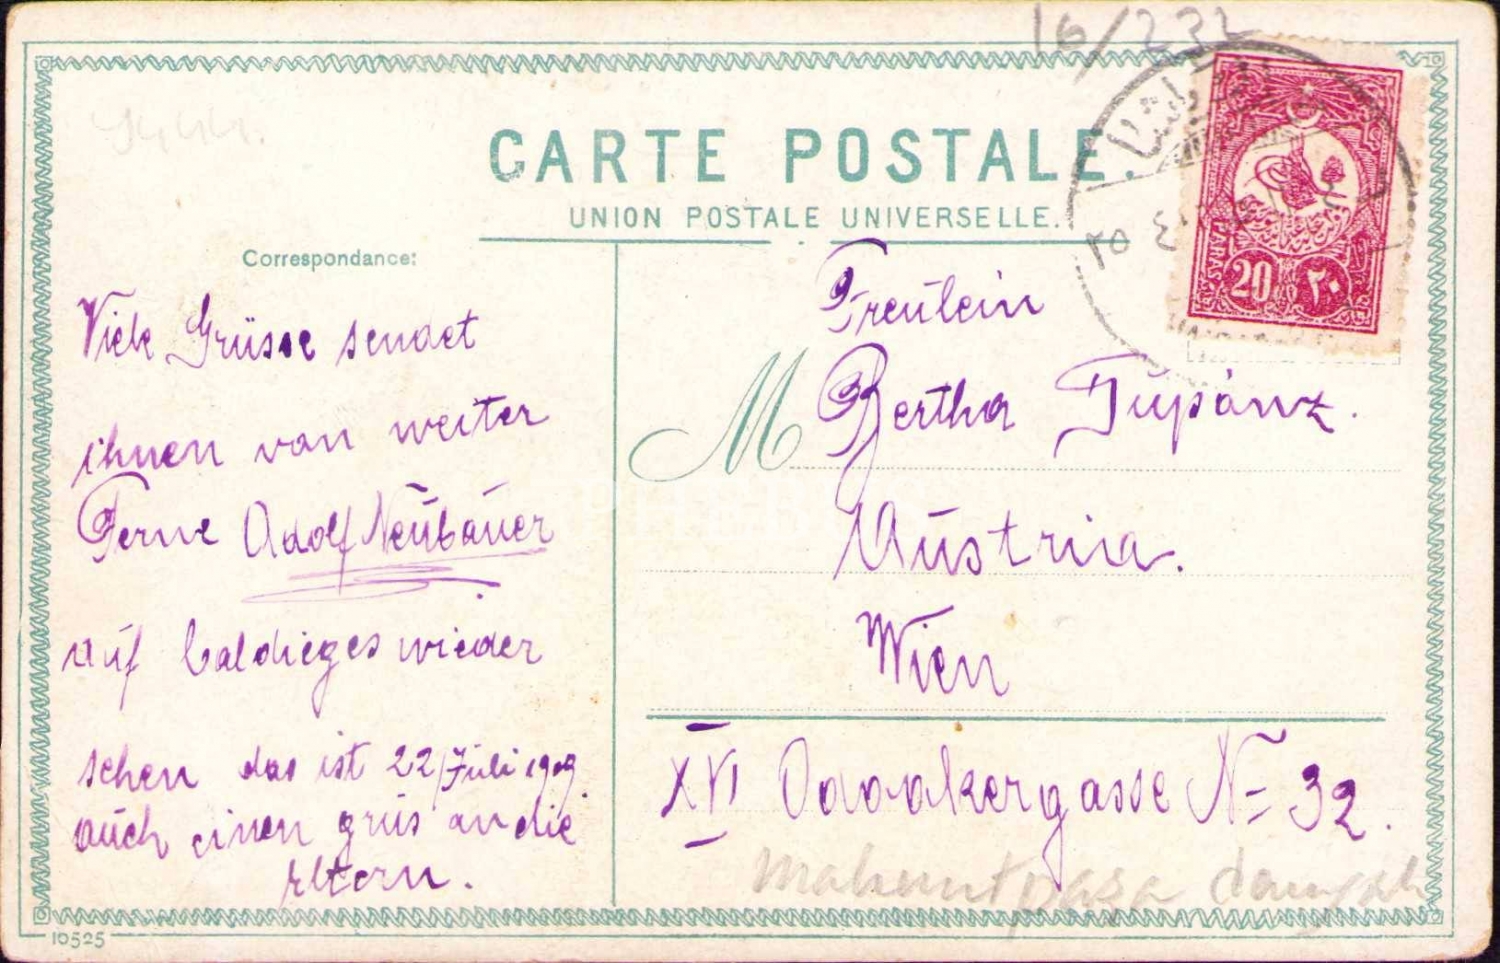 16/232
CARTE POSTALE.
UNION POSTALE UNIVERSELLE.
Correspondance:
Viele Grüsse sendet
ihnen von weiter
Ferne Adolf Neubauer
auf baldieges wieder
sehen das ist 22/Juli 1909.
auch einen grus an die
eltern.
M
Freulein
Bertha
Austria.
Wien
XVI Odoakergasse No 32.
PARAS
20 ٢٠
٢٥
10525